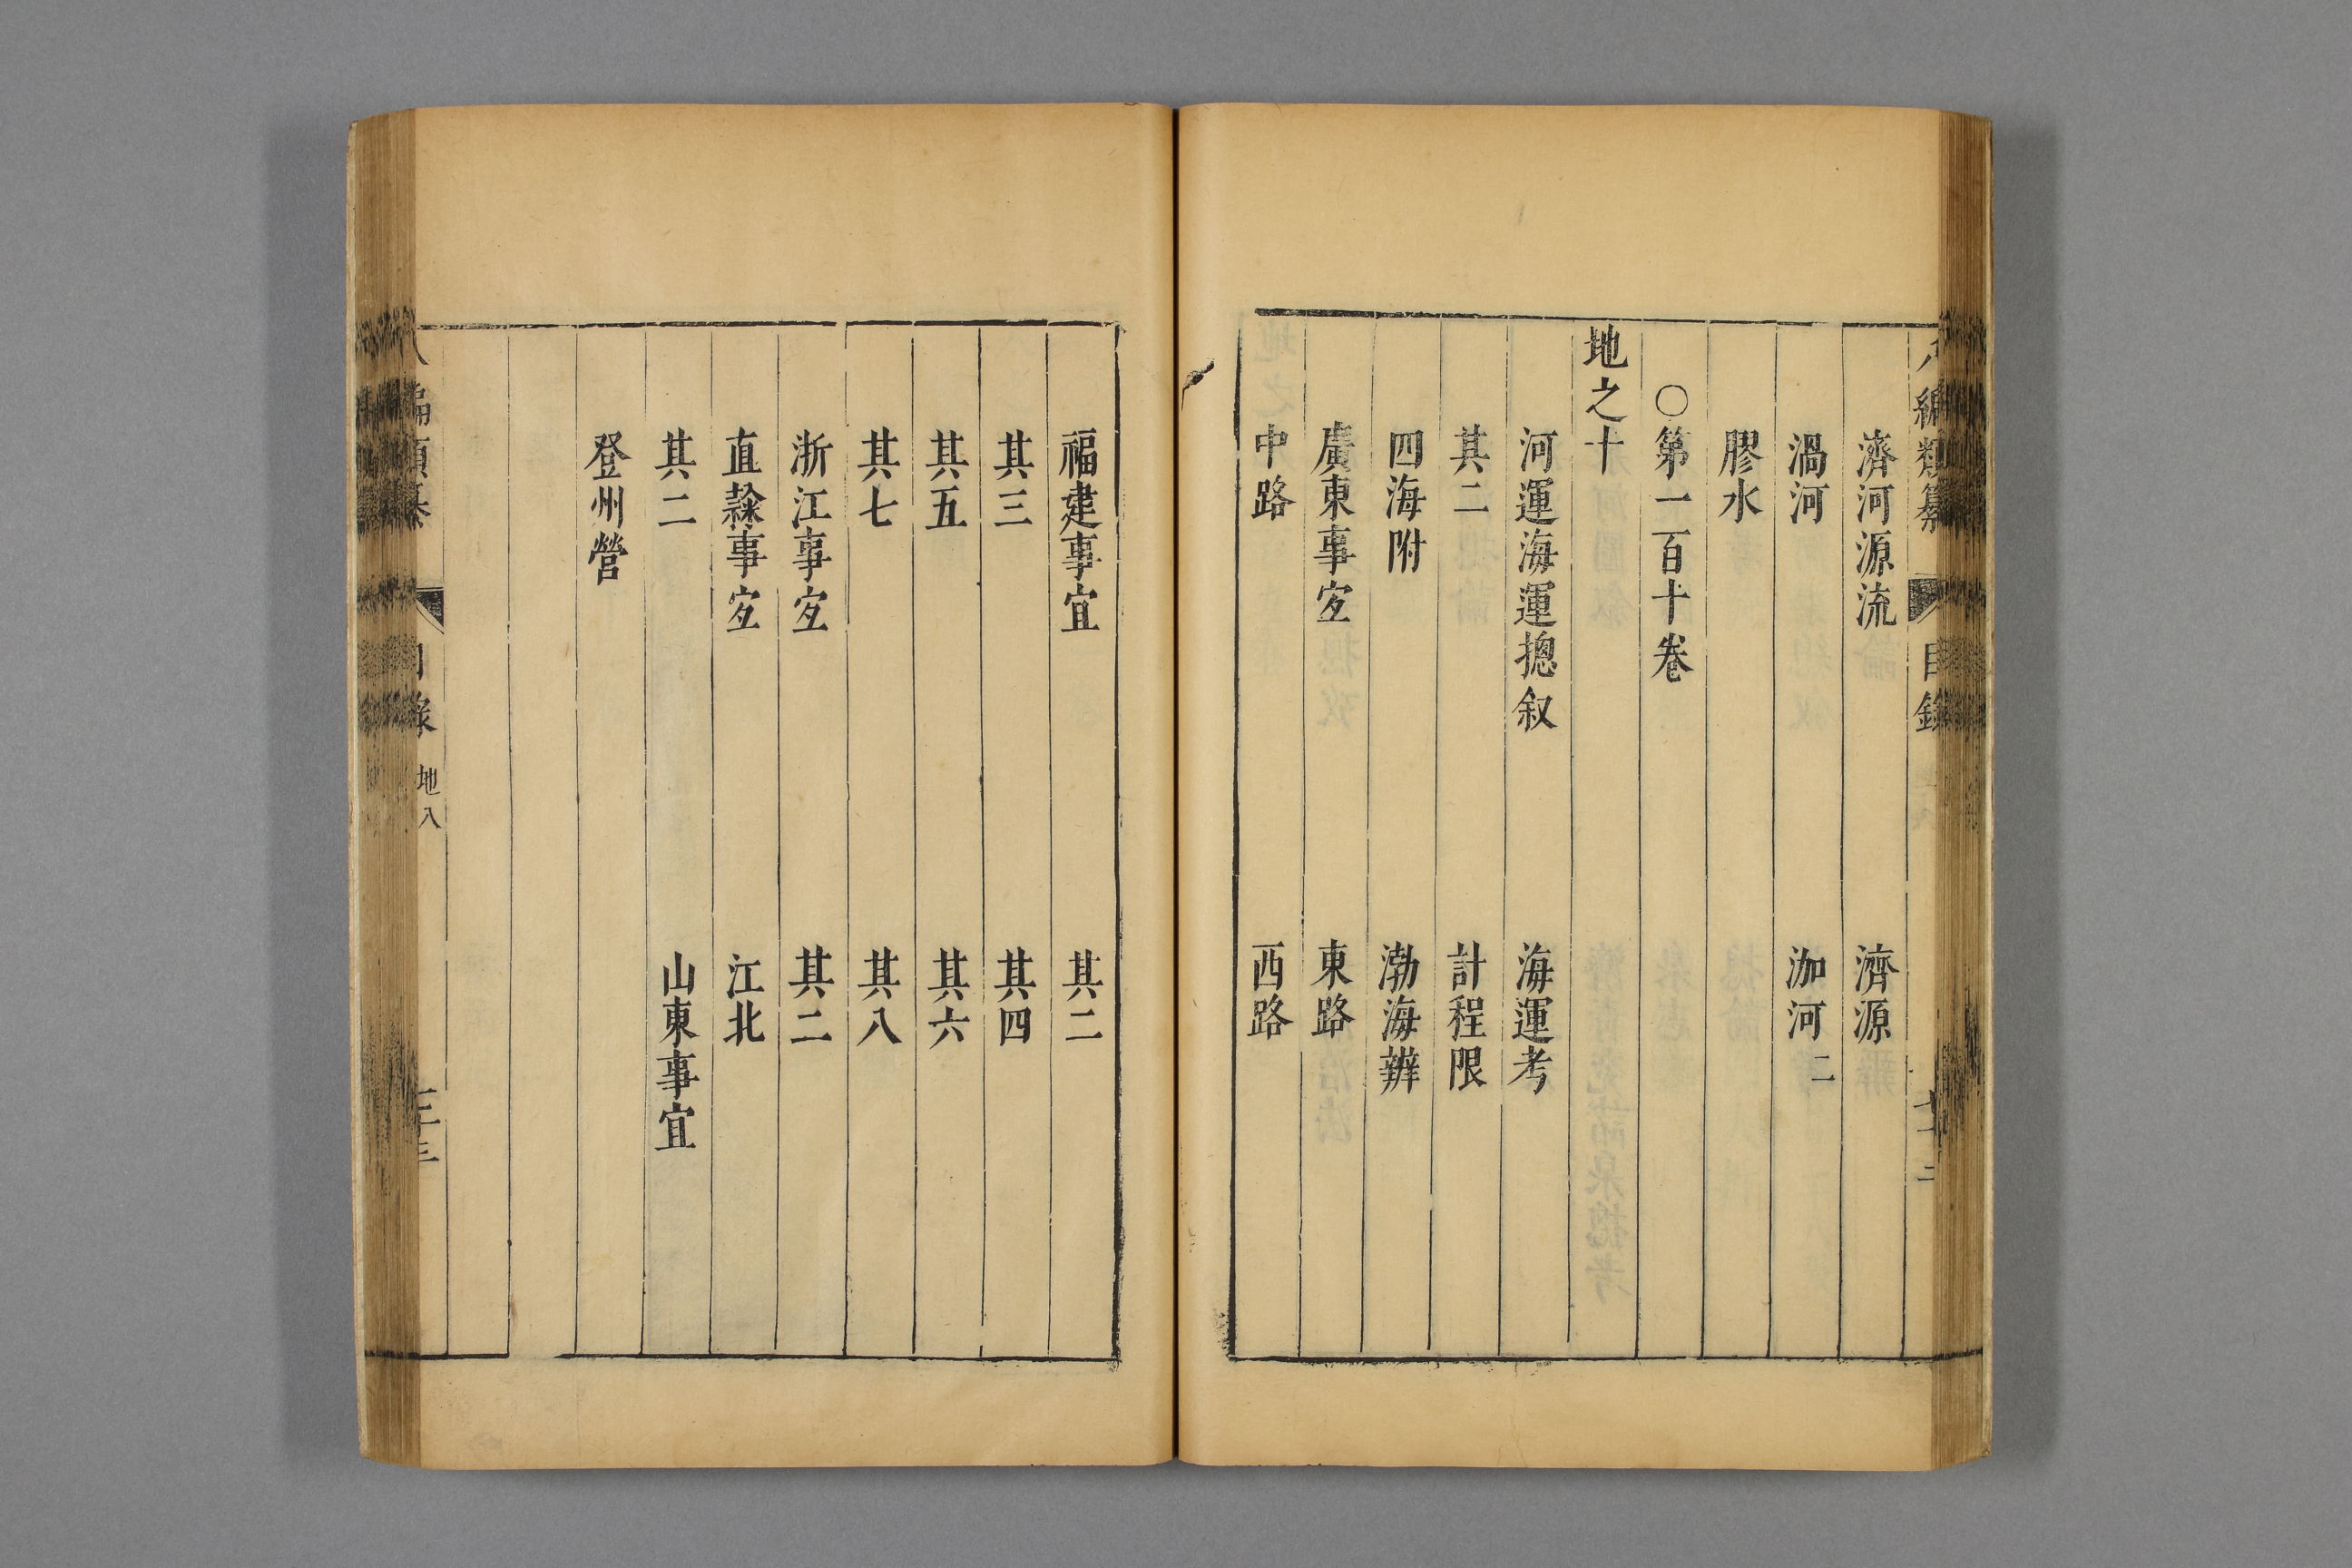 八編類纂 目錄
濟河源流 濟源
渦河 泇河二
膠水
○第一百十卷
地之十
河運海運摠叙 海運考
其二 計程限
四海附 渤海辨
廣東事宐 東路
中路 西路
福建事宜 其二
其三 其四
其五 其六
其七 其八
浙江事宐 其二
直隸事宐 江北
其二 山東事宜
登州營
八編類纂 目錄 地八